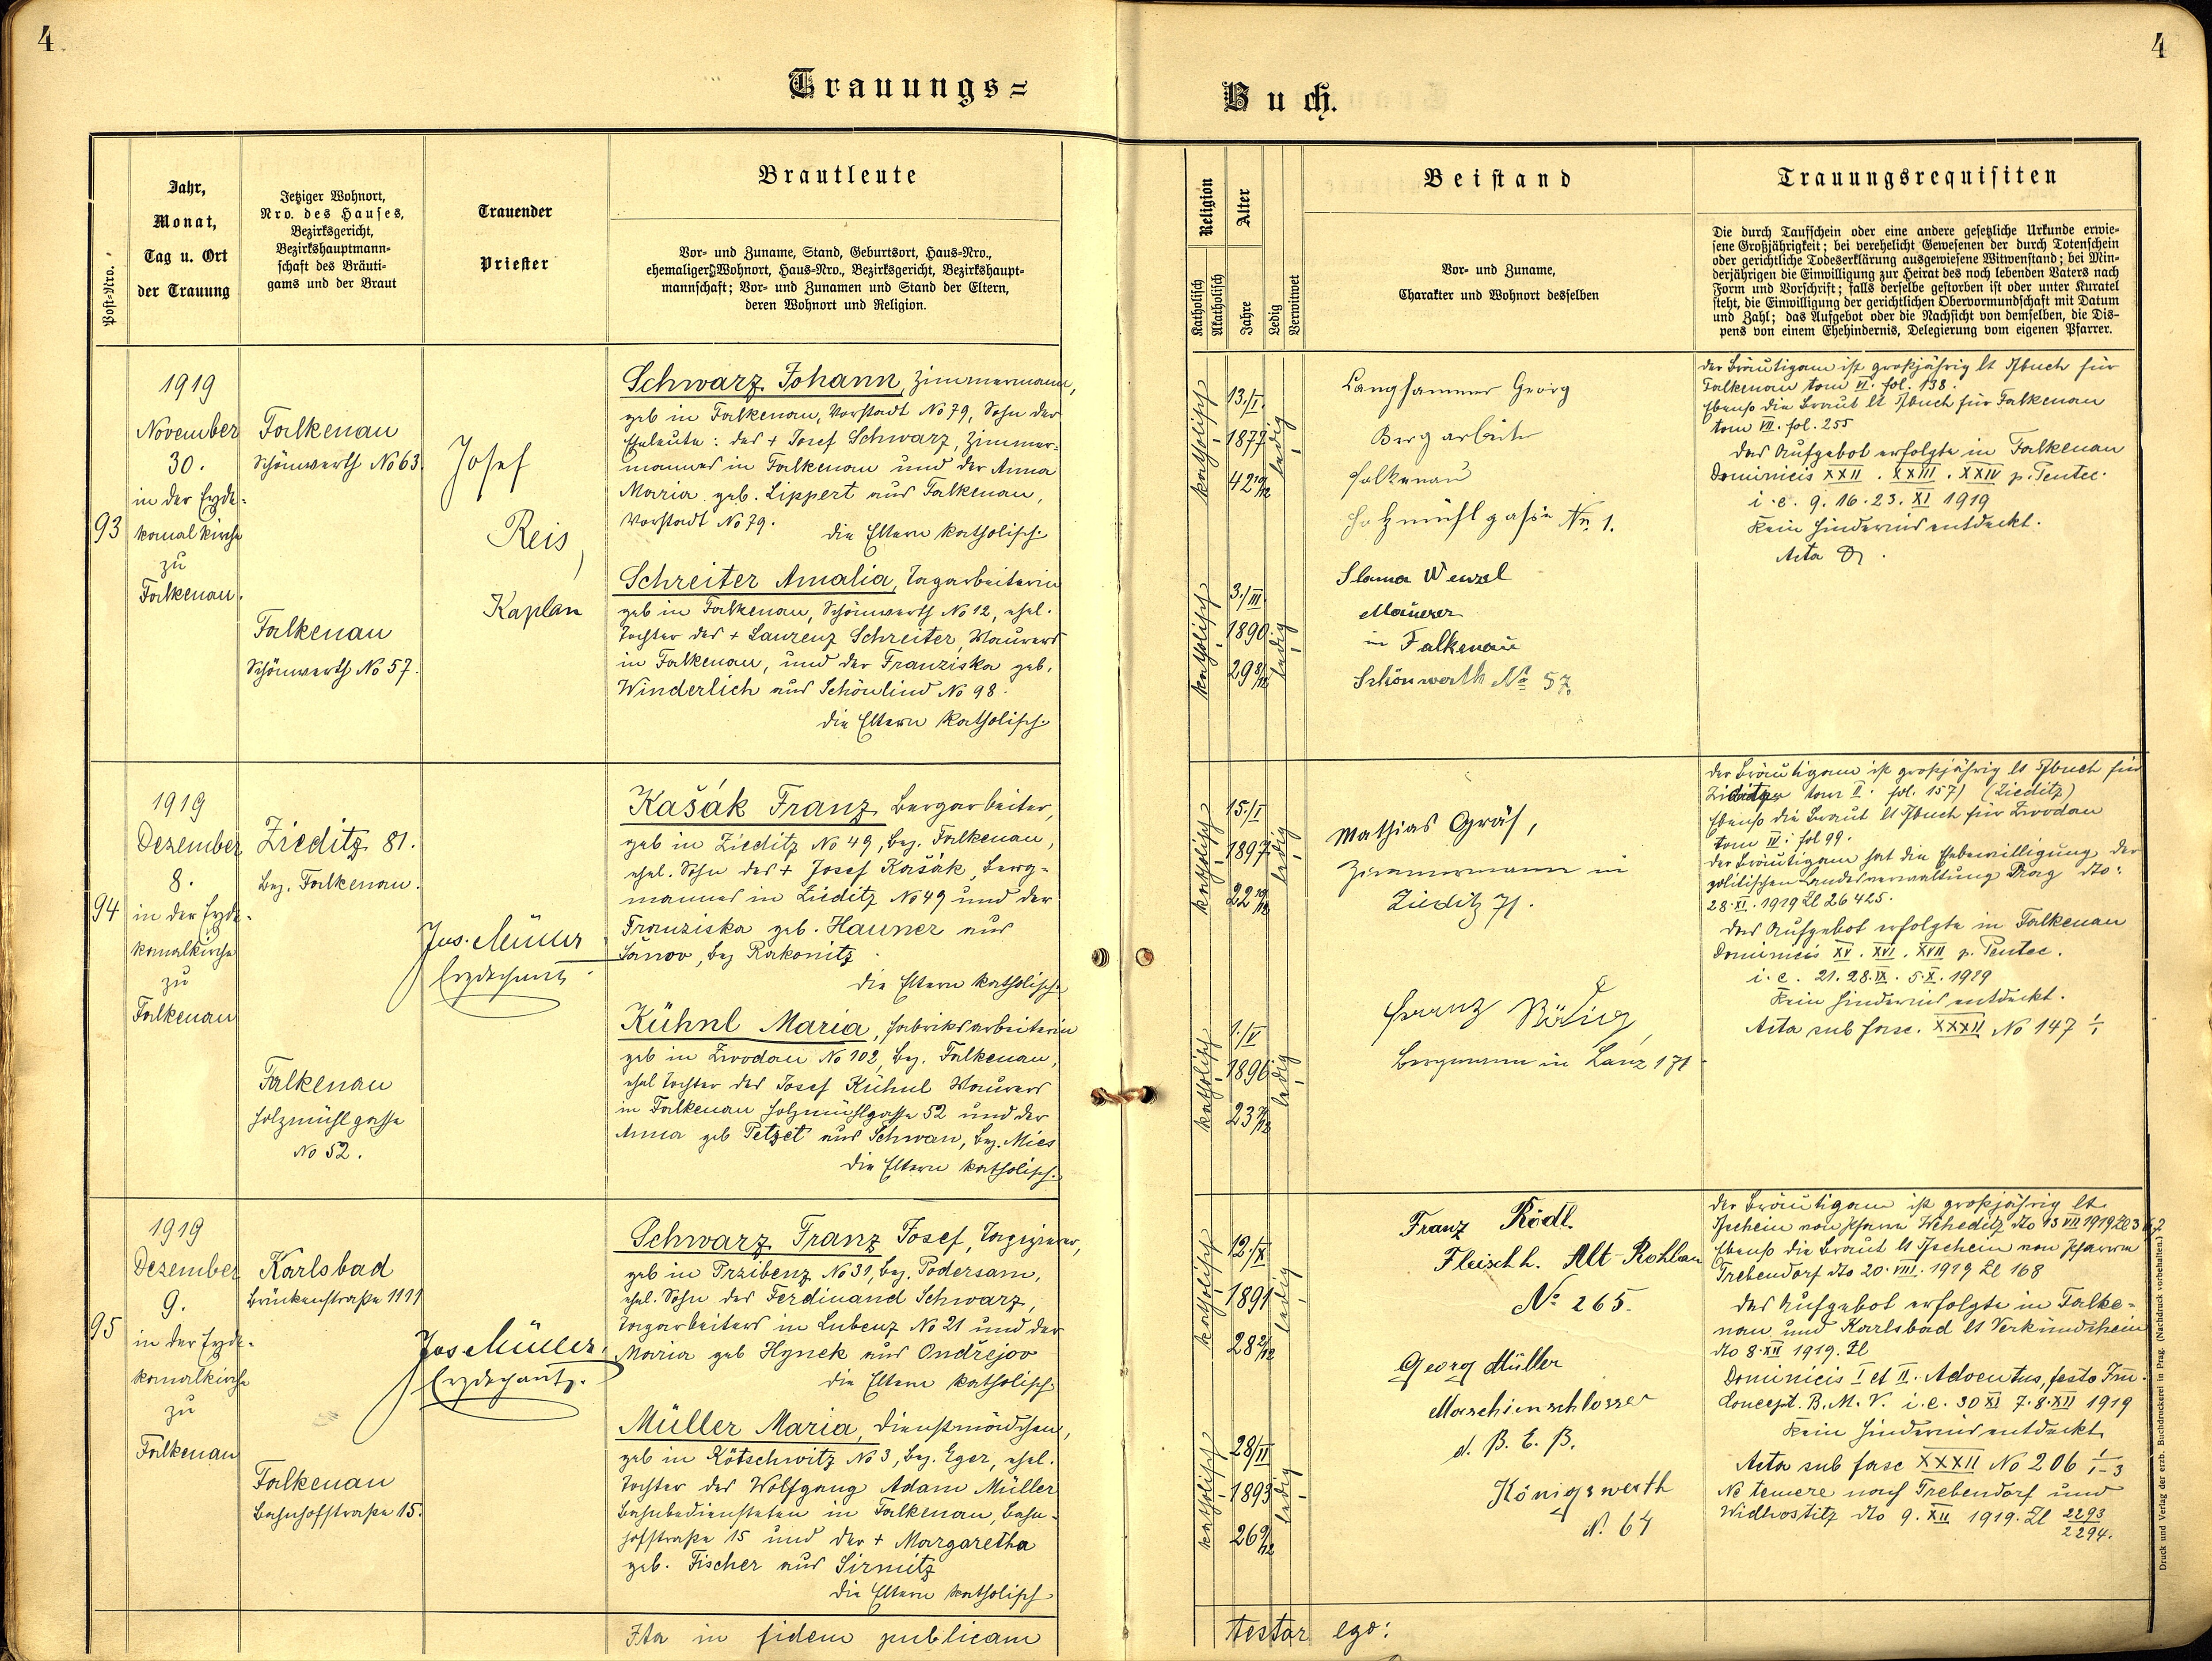 4
4
Trauungs=
Buch.
Post-Nro.
Jahr,
Monat,
Tag u. Ort
der Trauung
Jetziger Wohnort,
Nro. des Hauses,
Bezirksgericht,
Bezirkshauptmann-
schaft des Bräuti-
gams und der Braut
Trauender
Priester
Brautleute
Vor- und Zuname, Stand, Geburtsort, Haus-Nro.,
ehemaliger Wohnort, Haus-Nro., Bezirksgericht, Bezirkshaupt-
mannschaft; Vor- und Zunamen und Stand der Eltern,
deren Wohnort und Religion.
Religion
Katholisch
Akatholisch
Alter
Jahre
Ledig
Verwitwet
Beistand
Vor- und Zuname,
Charakter und Wohnort desselben
Trauungsrequisiten
Die durch Taufschein oder eine andere gesetzliche Urkunde erwie-
sene Großjährigkeit; bei verehelicht Gewesenen der durch Totenschein
oder gerichtliche Todeserklärung ausgewiesene Witwenstand; bei Min-
derjährigen die Einwilligung zur Heirat des noch lebenden Vaters nach
Form und Vorschrift; falls derselbe gestorben ist oder unter Kuratel
steht, die Einwilligung der gerichtlichen Obervormundschaft mit Datum
und Zahl; das Aufgebot oder die Nachsicht von demselben, die Dis-
pens von einem Ehehindernis, Delegierung vom eigenen Pfarrer.
93
1919
November
30.
in der Erzde-
kanalkirche
zu
Falkenau.
Falkenau
Schönwerth No 63.
Falkenau
Schönwerth No 57.
Josef
Reis,
Kaplan
Schwarz Johann, Zimmermann,
geb in Falkenau, Vorstadt No 79, Sohn der
Eheleute: des + Josef Schwarz, Zimmer-
mannes in Falkenau und der Anna
Maria geb. Lippert aus Falkenau,
Vorstadt No 79.
die Eltern katholisch.
Schreiter Amalia, Tagarbeiterin
geb in Falkenau, Schönwerth No 12, ehel.
Tochter des + Laurenz Schreiter, Maurers
in Falkenau, und der Franziska geb.
Winderlich aus Schönlind No 98.
die Eltern katholisch.
katholisch
13./I.
1877
42 10/12
ledig
katholisch
3./III.
1890
29 8/12
ledig
Langhammer Georg
Bergarbeiter
Falkenau
Holzmühlgasse Nr. 1.
Slama Wenzel
Maurer
in Falkenau
Schönwerth No 57.
der Bräutigam ist großjährig lt Tfbuch für
Falkenau tom VI. fol. 138.
Ebenso die Braut lt Tfbuch für Falkenau
tom VII. fol. 255
Das Aufgebot erfolgte in Falkenau
Dominicis XXII. XXIII. XXIV p. Pentec.
i. e. 9. 16. 23. XI 1919
Kein Hindernis entdeckt.
Acta
94
1919
Dezember
8.
in der Erzde-
kanalkirche
zu
Falkenau
Zieditz 81.
Bez. Falkenau.
Falkenau
Holzmühlgasse
No 52.
Jos. Müller
Erzdechant.
Kašák Franz Bergarbeiter,
geb in Zieditz No 49, Bez. Falkenau,
ehel. Sohn des + Josef Kašák, Berg-
mannes in Zieditz No 49 und der
Franziska geb. Hauner aus
Šanov, Bez Rakonitz
die Eltern katholisch.
Kühnl Maria, Fabriksarbeiterin
geb in Zwodau No 102, Bez. Falkenau,
ehel Tochter des Josef Kühnl Maurers
in Falkenau Holzmühlgasse 52 und der
Anna geb Petzet aus Schwan, Bez. Mies
die Eltern katholisch.
katholisch
15./I
1897
22 10/12
ledig
katholisch
1./V
1896
23 7/12
ledig
Mathias Gräf,
Zimmermann in
Zieditz 71.
Franz
Bergmann in Lanz 171
der Bräutigam ist großjährig lt Tfbuch für
tom II. fol. 157) (Zieditz)
Ebenso die Braut lt Tfbuch für Zwodau
tom IV. fol 99.
der Bräutigam hat die Ehebewilligung der
politischen Landesverwaltung Prag dto.
28. XI. 1919 Zl 26425.
Das Aufgebot erfolgte in Falkenau
Dominicis XV. XVI. XVII p. Pentec.
i. e. 21. 28. IX. 5. X. 1919
Kein Hindernis entdeckt.
Acta sub fasc. XXXII No 147
95
1919
Dezember
9.
in der Erzde-
kanalkirche
zu
Falkenau
Karlsbad
Brückenstraße 1111
Falkenau
Bahnhofstraße 15.
Jos Müller,
Erzdechant.
Schwarz Franz Josef, Tapezierer,
geb in Przibenz No 31, Bez. Podersam,
ehel. Sohn des Ferdinand Schwarz,
Tagarbeiters in Lubenz No 21 und der
Maria geb Hynek aus Ondřejov
die Eltern katholisch.
Müller Maria, Dienstmädchen,
geb in Kötschwitz No 3, Bez. Eger, ehel.
Tochter des Wolfgang Adam Müller
Bahnbediensteten in Falkenau, Bahn-
hofstraße 15 und der + Margaretha
geb. Fischer aus Sirmitz
die Eltern katholisch
katholisch
12./X
1891
28 2/12
ledig
katholisch
28/II
1893
26 9/12
ledig
Franz Rödl.
Fleischh. Alt-Rohlau
No 265.
Georg Müller
Maschienschlosser
d. B. E. B.
Königswerth
N. 64
der Bräutigam ist großjährig lt
Tfschein von Pfarre Weheditz dto 13 VII 1919
Ebenso die Braut lt Tfschein von Pfarre
Trebendorf dto 20. VIII. 1919 Zl 168
Das Aufgebot erfolgte in Falke-
nau und Karlsbad lt Verkündschein
dto 8. XII 1919. Zl
Dominicis I et II. Adventus, festo Im.
Concept. B. M. V. i. e. 30 XI 7. 8. XII 1919
Kein Hindernis entdeckt
Acta sub fasc XXXII No 206 1-3
Ne temere nach Trebendorf und
Widhostitz dto 9. XII 1919. Zl 2293
2294.
Ita in fidem publicam
testor ego:
Druck und Verlag der erzb. Buchdruckerei in Prag. (Nachdruck vorbehalten.)